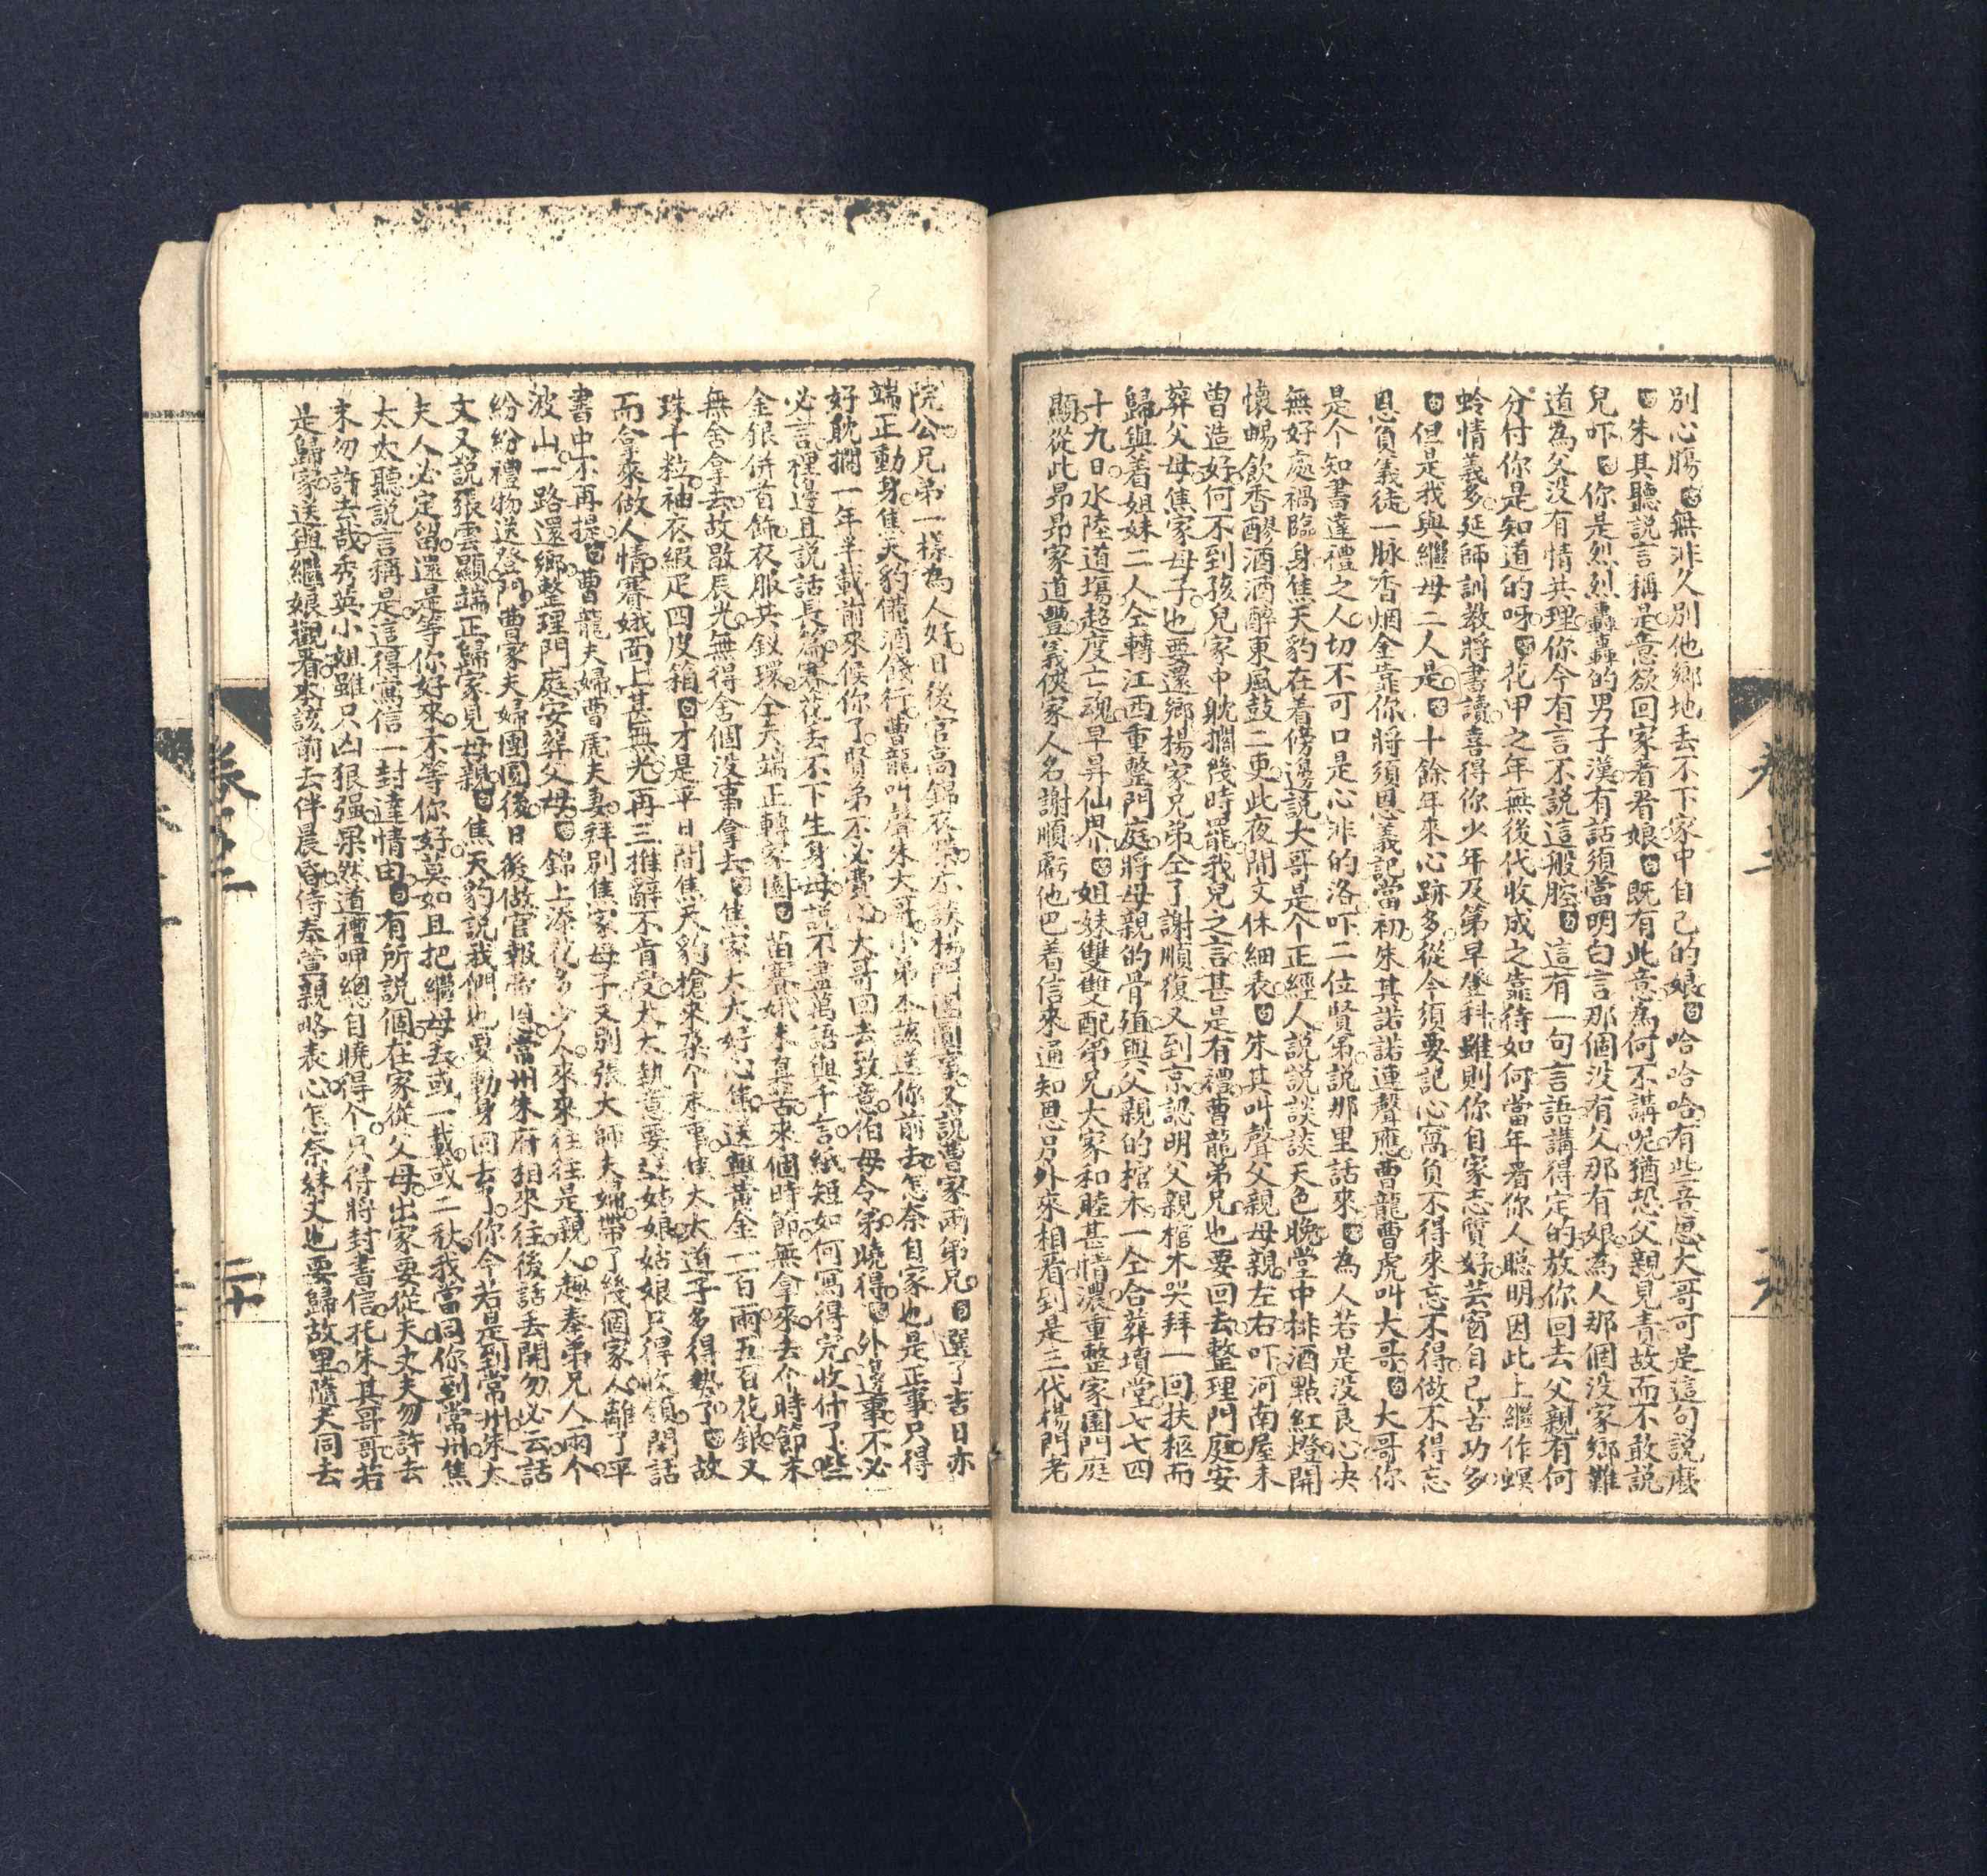 別心腸白無非久別他鄉地丟不下家中自己的娘白哈哈哈有些意思大哥可是這句說麽
白朱其聽說言稱是意欲回家看看娘白既有此意爲何不講呢猶恐父親見責故而不敢說
兒吓白你是烈烈轟轟的男子漢有話須當明白言那個没有父那有娘爲人那個没家鄉難
道為父没有情共理你今有言不說這般腔白這有一句言語講得定的放你回去父親有何
分付你是知道的呀白花甲之年無後代收成之靠待如何當年看你人聰明因此上繼作螟
蛉情義多延師訓教將書讀喜得你少年及第早登科雖則你自家志質好芸窗自己苦功多
白但是我與繼母二人是白十餘年來心跡多從今須要記心窩負不得來忘不得做不得忘
恩負義徒一脉香烟全靠你將須恩義記當初朱其諾諾連聲應曹龍曹虎叫大哥白大哥你
是个知書達禮之人切不可口是心非的洛吓二位賢弟說那里話來白為人若是没良心决
無好處禍臨身焦天豹在着傍邊說大哥是个正經人說說談談天色晚堂中排酒點紅燈開
懷暢飲香醪酒酒醉東風鼓二更此夜閒文休細表白朱其叫聲父親母親左右吓河南屋未
曾造好何不到孩兒家中躭擱幾時罷我兒之言甚是有禮曹龍弟兄也要回去整理門庭安
葬父母焦家母子也要還鄉楊家兄弟仝了謝順復又到京認明父親棺木哭拜一回扶柩而
歸與着姐妹二人仝轉江西重整門庭將母親的骨殖與父親的棺木一仝合葬墳堂七七四
十九日水陸道塲超度亡魂早昇仙界白姐妹雙雙配弟兄大家和睦甚情濃重整家園門庭
顯從此昂昂家道豐義俠家人名謝順虧他巴着信來通知恩另外來相看到是三代楊門老
院公兄弟一樣為人好日後官高錦衣榮亦談楊門團圓事又說曹家兩弟兄白選了吉日亦
端正動身焦天豹備酒餞行曹龍叫聲朱大哥小弟本該送你前去怎奈自家也是正事只得
好躭擱一年半載前來候你了賢弟不必費心大哥回去致意伯母令弟曉得白外邊事不必
必言裡邊且說話長篇賽花丟不下生身母說不盡萬語與千言紙短如何寫得完收什了些
金銀併首飾衣服共釵環仝夫端正轉家園白苗賽娥未真苦來個時節無拿來去个時節末
無舍拿去故歇辰光無得舍個没事拿去白焦家太太好心焦送趣黄金一百兩五百花銀又
珠十粒袖衣緞疋四皮箱白才是平日間焦天豹搶來杂个末事焦太太道子多得勢了白故
而拿來做人情賽娥面上甚無光再三推辭不肯受太太執意要送姑娘姑娘只得收領閒話
書中不再提白曹龍夫婦曹虎夫妻拜別焦家母子又别張大師夫婦帶了幾個家人離了平
波山一路還鄉整理門庭安葬父母白錦上添花多少人來來往往是親人趣奉弟兄人兩个
紛紛禮物送登門曹家夫婦團圓後日後做官報帝恩常州朱府相來往後話丟開勿必云話
文又說張雲顯端正歸家見母親白焦天豹說我們也要動身回去了你今若是到常州朱太
夫人必定留還是等你好來不等你好莫如且把繼母丟或一載或二秋我當同你到常州焦
太太聽說言稱是這得寫信一封達情由白有所說個在家從父母出家要從夫丈夫勿許去
末勿許去哉秀英小姐雖只凶狠强果然道禮呷總自曉得个只得將封書信托朱其哥哥若
是歸家送與繼娘觀看本該前去伴晨昏侍奉萱親略表心怎奈妹丈也要歸故里隨夫同去
卷二
二十